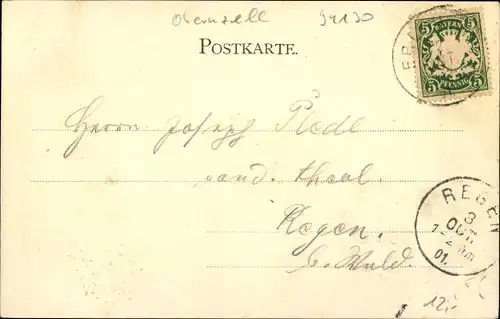 Obernzell 94130
POSTKARTE.
5 BAYERN 5
5 PFENNIG 5
Herrn Josef Riedl
cand. theol.
Regen.
b. Wald.
REGEN
3
OCT.
01.
12,-